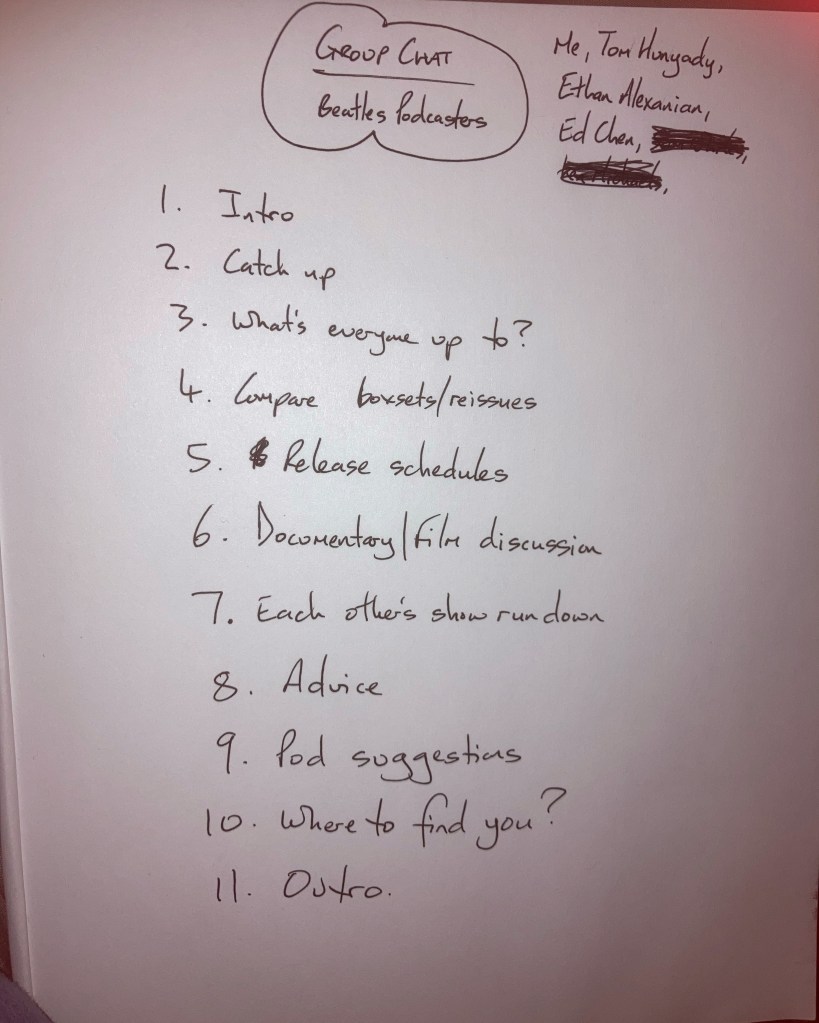 GROUP CHAT
Beatles Podcasters
Me, Tom Hunyady,
Ethan Alexanian,
Ed Chen,
1. Intro
2. Catch up
3. What's everyone up to?
4. Compare boxsets/reissues
5. Release schedules
6. Documentary/film discussion
7. Each other's show run down
8. Advice
9. Pod suggestions
10. Where to find you?
11. Outro.